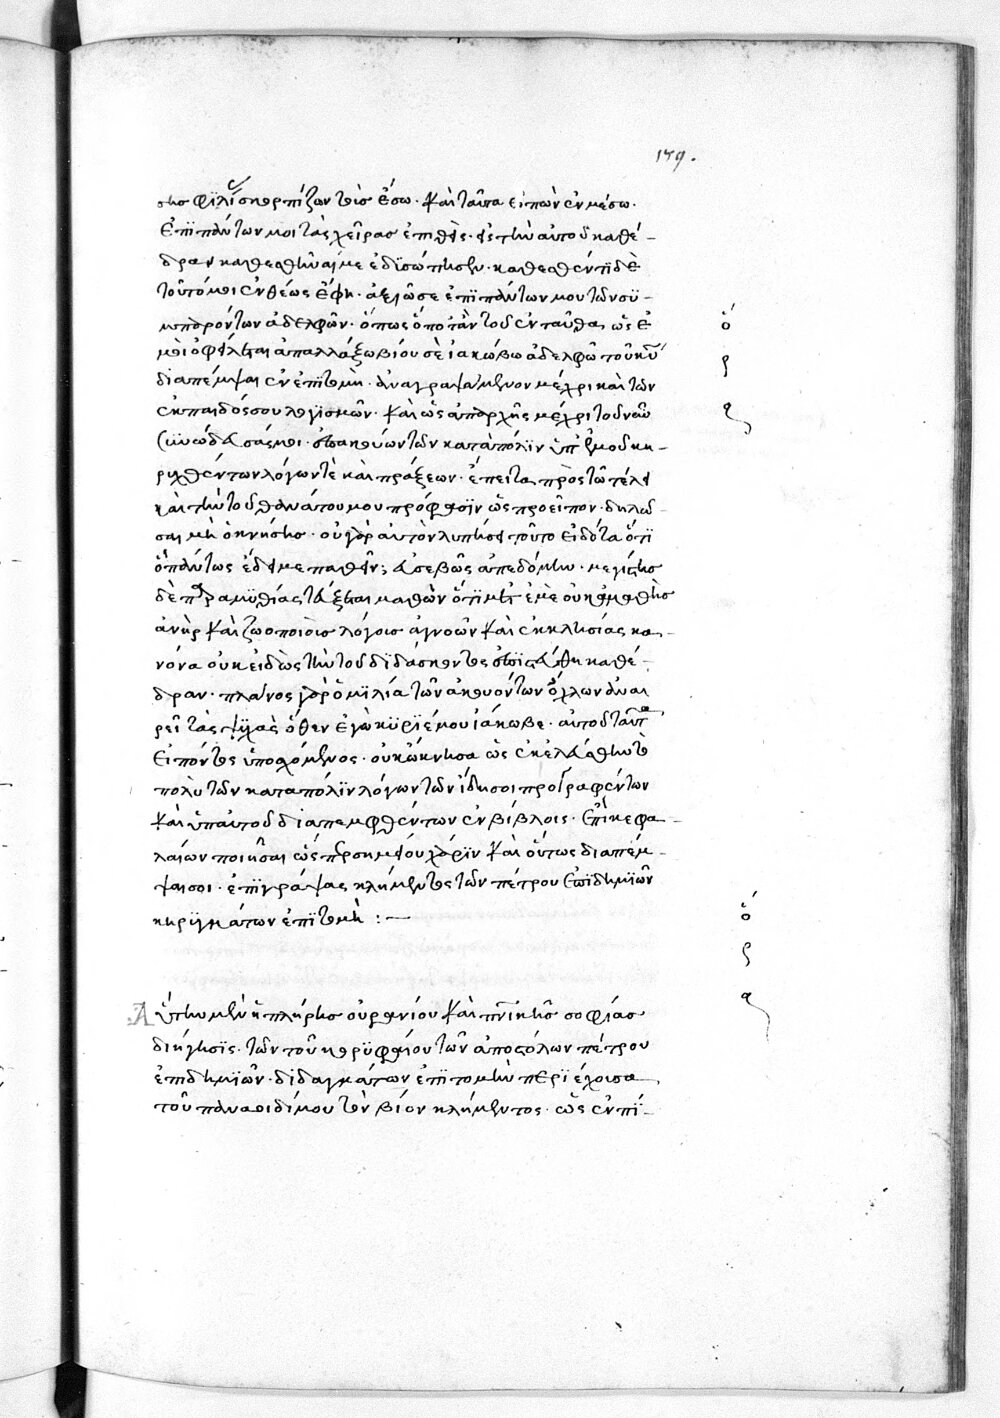 159.
της φϊλίσκορπίζων τοῖσ ἔσω. καὶ ταῦτα εἰπὼν ἐν μέσω.
ἐπϊ πάντων μοι τὰς χεῖρασ ἐπιθεὶς. εἰς τὴν αὐτοῦ καθέ-
δραν καθεσθῆναί με ἐδϊσώπησεν. καθεσθέντϊ δὲ
τοῦτό μοι ἐνθέως ἔφη. ἀξιῶσε ἐπϊ πάντων μου τῶν σϋ-
μπαρόντων ἀδελφῶν. ὅπως ὁπόταν τοῦ ἐνταῦθα, ὡς ἐ
μοὶ ὀφείλεται ἀπαλλάξω βίου σὲ ἰακώβω ἀδελφῶ τοῦ κυ
διαπέμψαι ἐν ἐπϊτομῆ. ἀναγραψάμενον μέχρι καὶ τῶν
ἐκ παιδός σου λογϊσμῶν. καὶ ὡς ἀπαρχῆς μέχρι τοῦ νῦν
συνώδευσάς μοι. ἐπακούων τῶν κατὰ πόλϊν ὑπ' ἐμοῦ κη-
ρυχθέντων λόγων τὲ καὶ πράξεων. ἔπειτα πρὸς τῶ τέλει
καὶ τὴν τοῦ θανάτου μου πρόφασϊν ὡς προεῖπον. δηλῶ-
σαι μὴ ὀκνήσησ. οὐ γὰρ αὐτὸν λυπήσει τοῦτο εἰδότα ὅτϊ
ὃ πάντως ἔδει με παθεῖν; εὐσεβῶς ἀπεδόμην. μεγίστησ
δὲ παραμϋθίας τεύξεται μαθὼν ὅτϊ μετ' ἐμὲ οὐκ ἀμαθὴσ
ἀνὴρ καὶ ζωοποιοὶσ λόγοισ ἀγνοῶν καὶ ἐκκλησίας κα-
νόνα οὐκ εἰδὼς τὴν τοῦ διδάσκοντος ἐπϊστεύθη καθέ-
δραν. πλάνος γὰρ ὁμϊλία τῶν ἀκουόντων ὄχλων ἀναι
ρεῖ τὰς ψϋχὰς ὅθεν ἐγὼ κϋρϊέ μου ἰάκωβε. αὐτοῦ ταῦτα
εἰπόντος ὑποσχόμενος. οὐκ ὤκνησα ὡς ἐκελεύσθην τὸ
πολὺ τῶν κατὰ πόλϊν λόγων τῶν ἤδη σοι προγραφέντων
καὶ ὑπ αὐτοῦ διαπεμφθέντων ἐν βίβλοις. ἐπϊ κεφα-
λαίων ποιῆσαι ὡς περ σημείου χάρϊν καὶ οὕτως διαπέμ-
ψαι σοι. ἐπϊγράψας κλήμεντος τῶν πέτρου ἐπϊδημϊῶν
κηρϋγμάτων ἐπϊτομὴ : —
Αὕτη μὲν ἡ πλήρησ οὐρανίου καὶ πνικῆσ σοφίασ
διήγησϊς. τῶν τοῦ κορϋφαίου τῶν ἀποστόλων πέτρου
ἐπιδημϊῶν. διδαγμάτων ἐπϊτομὴν περϊέχουσα,
τοῦ παναοιδίμου τὸν βίον κλήμεντος. ὡς ἐν πϊ-